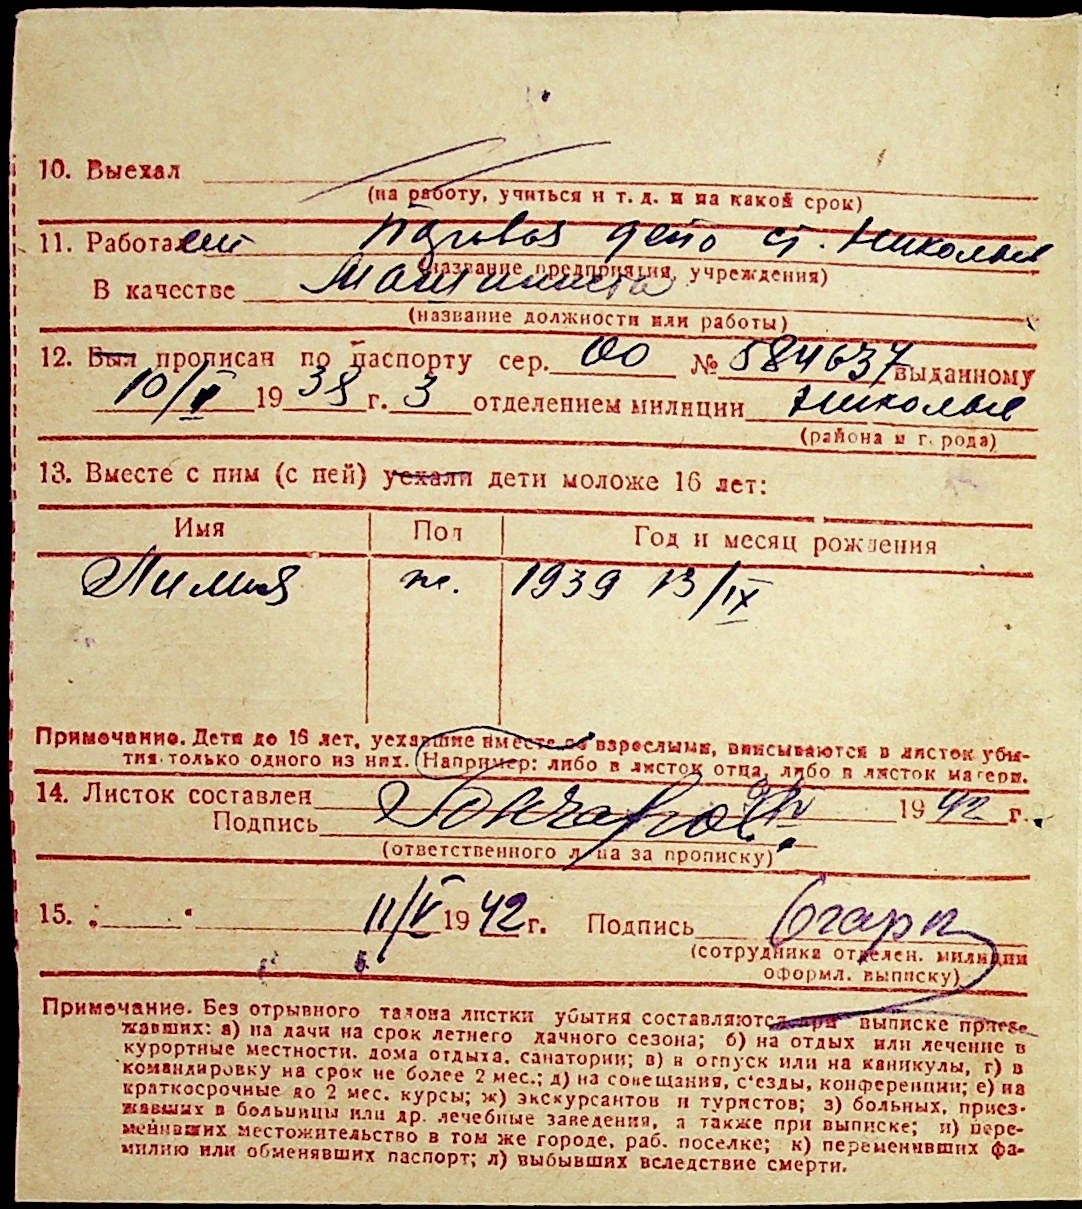 10. Выехал
(на работу, учиться и т. д. и на какой срок)
11. Работает Паровоз депо ст. Николаев
(название предприятия, учреждения)
В качестве Машиниста
(название должности или работы)
12. Был прописан по паспорту сер. ОО № 584637 выданному
10/V 1938 г. 3 отделением милиции Николаев
(района и города)
13. Вместе с ним (с ней) уехали дети моложе 16 лет:
Имя Пол Год и месяц рождения
Лилия ж. 1939 13/IX
Примечание. Дети до 16 лет, уехавшие вместе со взрослыми, вписываются в листок убы-
тия только одного из них. Например: либо в листок отца, либо в листок матери.
14. Листок составлен 1942 г.
Подпись
(ответственного лица за прописку)
15. 11/V 1942 г. Подпись
(сотрудника отделен. милиции
оформл. выписку)
Примечание. Без отрывного талона листки убытия составляются при выписке приез-
жавших: а) на дачи на срок летнего дачного сезона; б) на отдых или лечение в
курортные местности, дома отдыха, санатории; в) в отпуск или на каникулы, г) в
командировку на срок не более 2 мес.; д) на совещания, с'езды, конференции; е) на
краткосрочные до 2 мес. курсы; ж) экскурсантов и туристов; з) больных, приез-
жавших в больницы или др. лечебные заведения, а также при выписке; и) пере-
менивших местожительство в том же городе, раб. поселке; к) переменивших фа-
милию или обменявших паспорт; л) выбывших вследствие смерти.